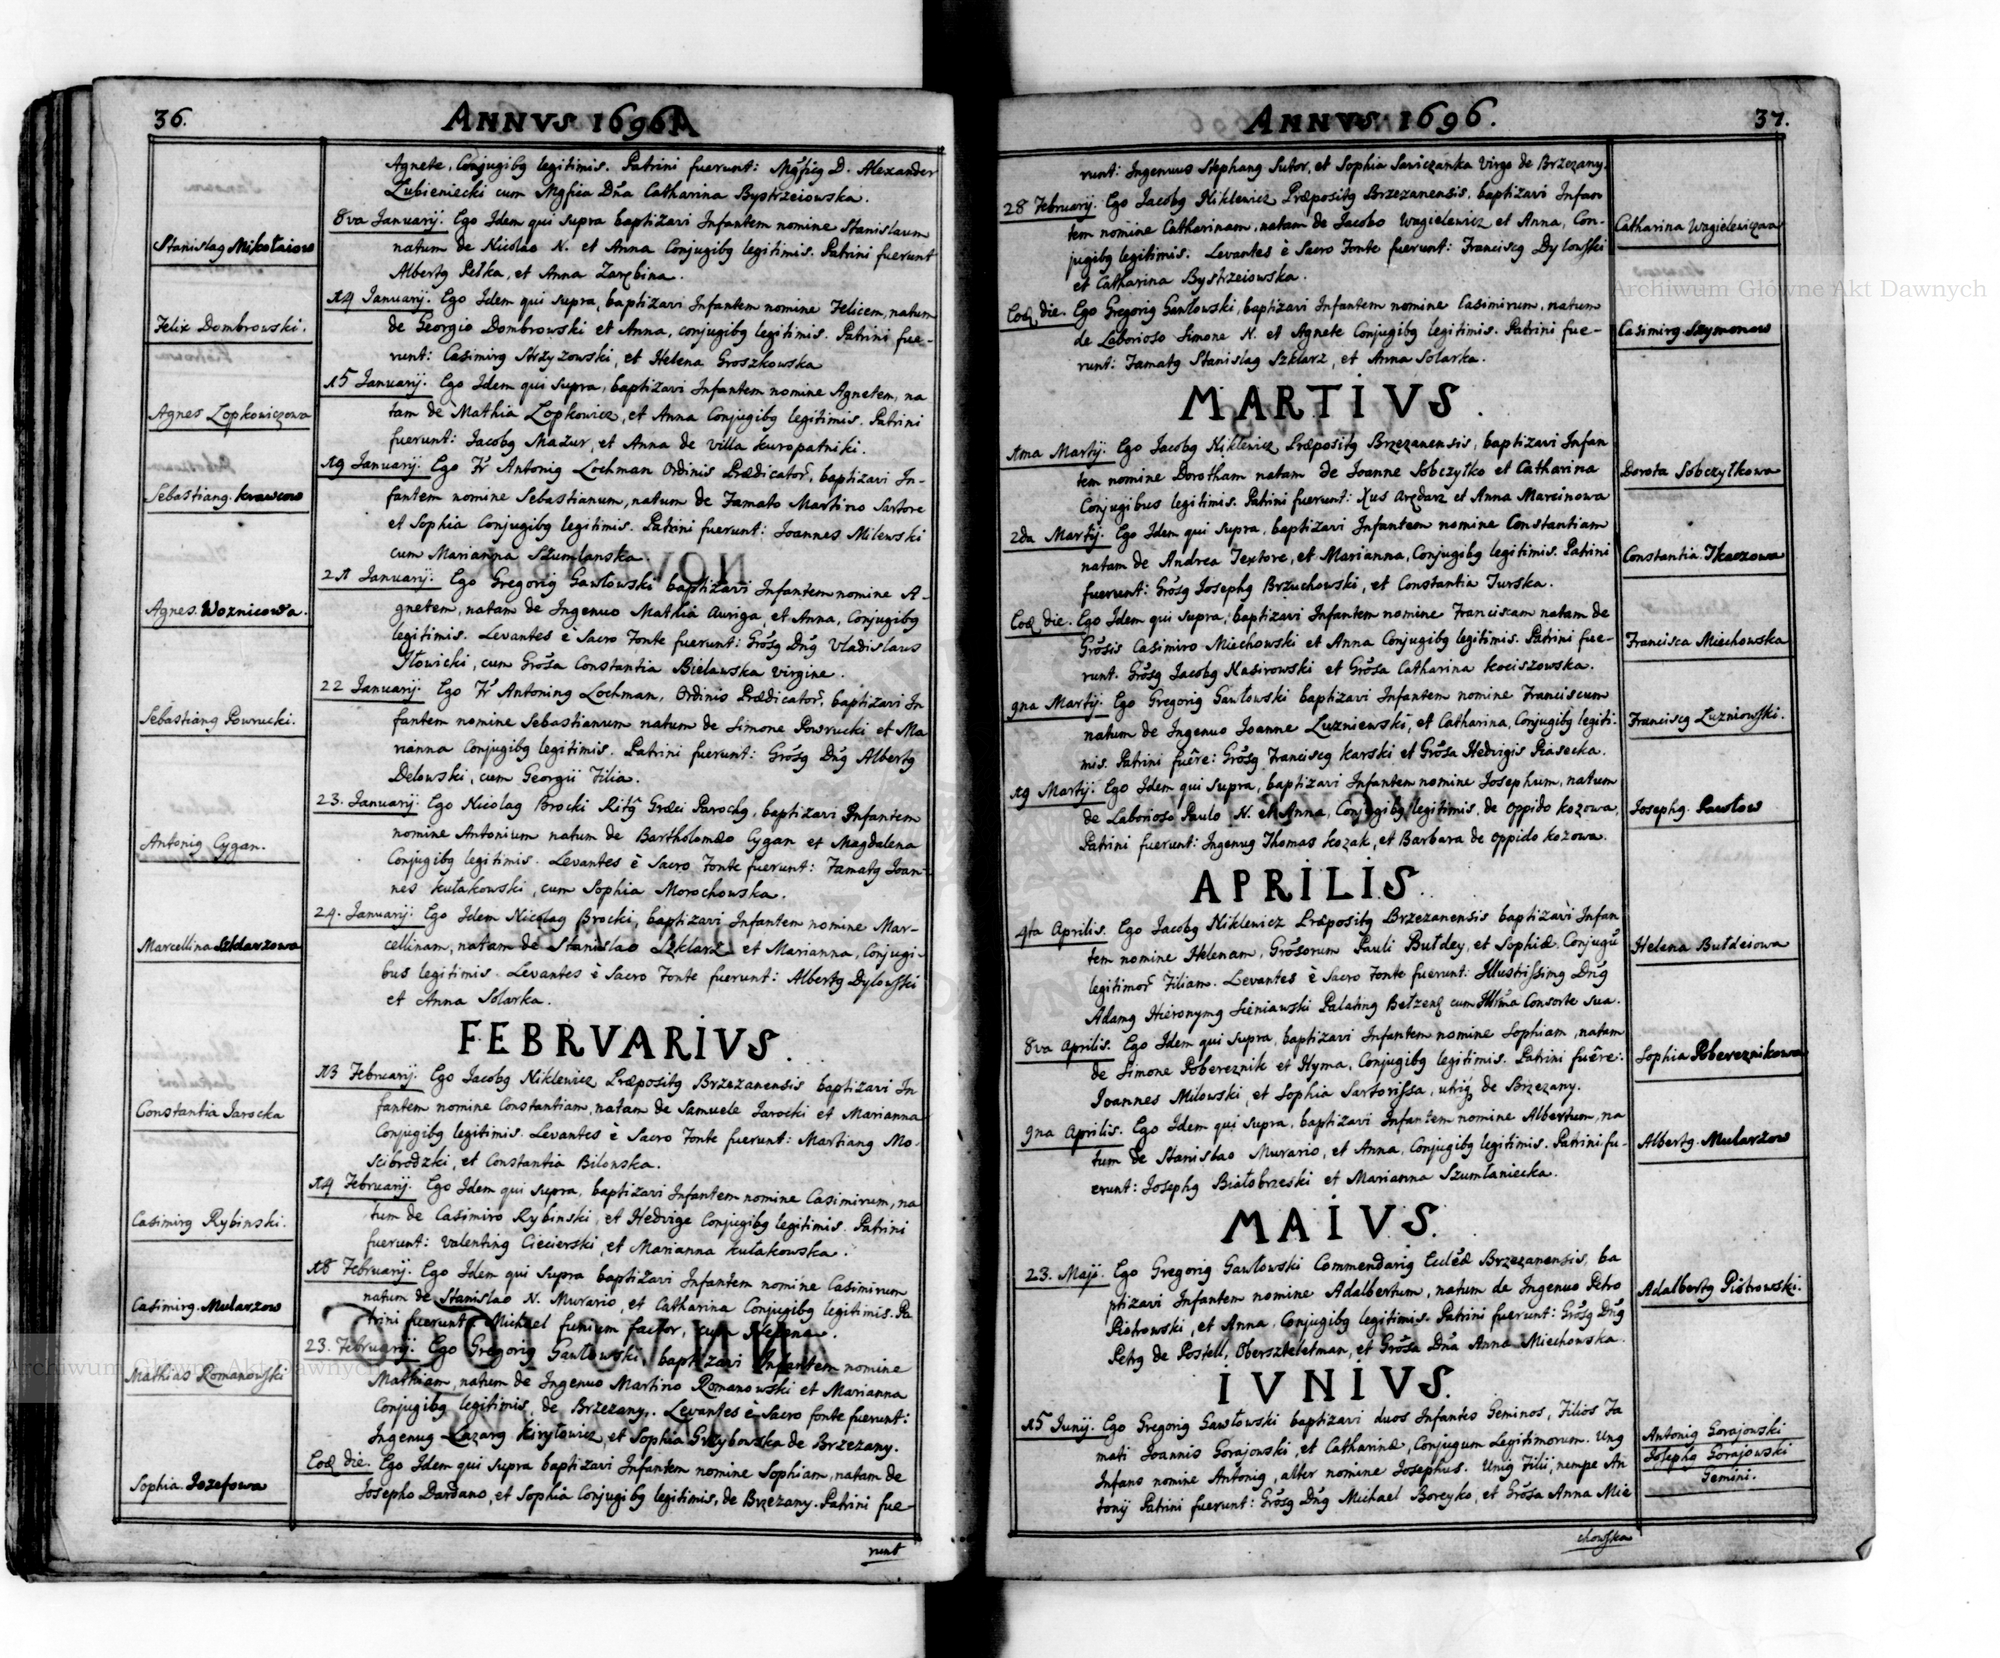 36.
ANNVS 1696
Agnete, Conjugibꝰ legitimis. Patrini fuerunt: Mgficꝰ D. Alexander
Lubieniecki cum Mgfica Dña Catharina Bystrzeiowska.
Stanislaꝰ Mikołaiow
8va Januarij. Ego Idem qui supra baptizavi Infantem nomine Stanislaum
natum de Nicolao N. et Anna Conjugibꝰ legitimis. Patrini fuerunt
Albertꝰ Pełka, et Anna Zarębina.
Felix Dombrowski.
14 Januarij. Ego Idem qui supra, baptizavi Infantem nomine Felicem, natum
de Georgio Dombrowski et Anna, conjugibꝰ legitimis. Patrini fue-
runt: Casimirꝰ Strzyzowski, et Helena Groszkowska
Agnes Lopkowiczowa
15 Januarij. Ego Idem qui supra, baptizavi Infantem nomine Agnetem, na
tam de Mathia Lopkowicz, et Anna Conjugibꝰ legitimis. Patrini
fuerunt: Jacobꝰ Mazur, et Anna de villa Kuropatniki.
Sebastianꝰ Krawcow
19 Januarij. Ego Fr Antoniꝰ Lochman Ordinis Prædicator, baptizavi In-
fantem nomine Sebastianum, natum de Famato Martino Sartore
et Sophia Conjugibꝰ legitimis. Patrini fuerunt: Joannes Milewski
cum Marianna Szumlanska
Agnes Woznicowa.
21 Januarij. Ego Gregoriꝰ Gawłowski baptizavi Infantem nomine A-
gnetem, natam de Ingenuo Mathia Auriga, et Anna, Conjugibꝰ
legitimis. Levantes è Sacro Fonte fuerunt: Grõsꝰ Dñꝰ Vladislaus
Iłowicki, cum Grõsa Constantia Bielawska Virgine.
Sebastianꝰ Powrucki.
22 Januarij. Ego Fr Antoninꝰ Lochman, Ordinis Prædicator, baptizavi In
fantem nomine Sebastianum natum de Simone Powrucki et Ma
rianna Conjugibꝰ legitimis. Patrini fuerunt: Grõsꝰ Dñꝰ Albertꝰ
Delowski, cum Georgii Filia.
Antoniꝰ Cygan.
23. Januarij. Ego Nicolaꝰ Brocki Ritꝰ Græci Parochꝰ, baptizavi Infantem
nomine Antonium natum de Bartholomæo Cygan et Magdalena
Conjugibꝰ legitimis. Levantes è Sacro Fonte fuerunt: Famatꝰ Joan-
nes Kułakowski, cum Sophia Morochowska.
Marcellina Szklarzowa
24. Januarij. Ego Idem Nicolaꝰ Brocki, baptizavi Infantem nomine Mar-
cellinam, natam de Stanislao Szklarz et Marianna, Conjugi-
bus legitimis. Levantes è Sacro Fonte fuerunt: Albertꝰ Dylowſki
et Anna Solarka.
FEBRVARIVS.
Constantia Jarocka
13 February. Ego Jacobꝰ Niklewicz Præpositꝰ Brzezanensis baptizavi In
fantem nomine Constantiam, natam de Samuele Jarocki et Marianna
Conjugibꝰ legitimis. Levantes è Sacro Fonte fuerunt: Martianꝰ Mo-
scibrodzki, et Constantia Bilonska.
Casimirꝰ Rybinski.
14 February. Ego Idem qui supra, baptizavi Infantem nomine Casimirum, na
tum de Casimiro Rybinski, et Hedvige Conjugibꝰ legitimis. Patrini
fuerunt: Valentinꝰ Ciecierski, et Marianna Kułakowska.
Casimirꝰ Mularzow
18 February. Ego Idem qui supra baptizavi Infantem nomine Casimirum
natum de Stanislao N. Murario, et Catharina Conjugibꝰ legitimis. Pa
trini fuerunt: Michael funium factor, cum Helena.
Mathias Romanowſki
23. February. Ego Gregoriꝰ Gawłowski, baptizavi Infantem nomine
Mathiam, natum de Ingenuo Martino Romanowski et Marianna
Conjugibꝰ legitimis, de Brzezany. Levantes è Sacro fonte fuerunt:
Ingenuꝰ Lazarꝰ Kiryłowicz, et Sophia Grzybowska de Brzezany.
Sophia Jozefowa
Eod. die. Ego Idem qui supra baptizavi Infantem nomine Sophiam, natam de
Josepho Dardano, et Sophia Conjugibꝰ legitimis, de Brzezany. Patrini fue-
runt
ANNVS 1696.
37.
runt: Ingenuus Stephanꝰ Sutor, et Sophia Sawiczanka Virgo de Brzezany.
28 February. Ego Jacobꝰ Niklewicz Præpositꝰ Brzezanensis, baptizavi Infan-
tem nomine Catharinam, natam de Jacobo Wagielewicz et Anna, Con-
jugibꝰ legitimis. Levantes è Sacro Fonte fuerunt: Franciscꝰ Dylowſki
et Catharina Bystrzeiowska.
Catharina Wagielewiczowa
Eod. die. Ego Gregoriꝰ Gawłowski, baptizavi Infantem nomine Casimirum, natum
de Laborioso Simone N. et Agnete Conjugibꝰ legitimis. Patrini fue-
runt: Famatꝰ Stanislaꝰ Szklarz, et Anna Solarka.
Casimirꝰ Szymonow
MARTIVS.
1ma Martij. Ego Jacobꝰ Niklewicz Præpositꝰ Brzezanensis, baptizavi Infan
tem nomine Dorotham natam de Joanne Sobczytko et Catharina
Conjugibus legitimis. Patrini fuerunt: Xus Arędarz et Anna Marcinowa
Dorota Sobczytkowa
2da Martij. Ego Idem qui supra, baptizavi Infantem nomine Constantiam
natam de Andrea Textore, et Marianna, Conjugibꝰ legitimis. Patrini
fuerunt: Grõsꝰ Josephꝰ Brzuchowski, et Constantia Turska.
Constantia Tkaczowa
Eod. die. Ego Idem qui supra, baptizavi Infantem nomine Franciscam natam de
Grõsis Casimiro Miechowski et Anna Conjugibꝰ legitimis. Patrini fue-
runt. Grõsꝰ Jacobꝰ Nasirowski et Grõsa Catharina Kociszowska.
Francisca Miechowska
9na Martij. Ego Gregoriꝰ Gawłowski baptizavi Infantem nomine Franciscum
natum de Ingenuo Joanne Luzniewski, et Catharina, Conjugibꝰ legiti-
mis. Patrini fuêre: Grõsꝰ Franciscꝰ Karski et Grõsa Hedvigis Piasecka.
Franciscꝰ Luzniowſki.
19 Martij. Ego Idem qui supra, baptizavi Infantem nomine Josephum, natum
de Laborioso Paulo N. et Anna, Conjugibꝰ legitimis, de Oppido Kozowa,
Patrini fuerunt: Ingenuꝰ Thomas Kozak, et Barbara de Oppido Kozowa.
Josephꝰ Pawłow
APRILIS.
4ta Aprilis. Ego Jacobꝰ Niklewicz Præpositꝰ Brzezanensis baptizavi Infan
tem nomine Helenam, Grõsorum Pauli Bułdey, et Sophiæ, Conjugũ
legitimor Filiam. Levantes è Sacro Fonte fuerunt: Illustrissimꝰ Dñꝰ
Adamꝰ Hieronymꝰ Sieniawski Palatinꝰ Bełzens cum Illrma Consorte sua.
Helena Bułdeiowa
8va Aprilis. Ego Idem qui supra, baptizavi Infantem nomine Sophiam, natam
de Simone Pobereznik et Hyma, Conjugibꝰ legitimis. Patrini fuêre:
Joannes Milowski, et Sophia Sartorissa, utriqꝫ de Brzezany.
Sophia Pobereznikowa
9na Aprilis. Ego Idem qui supra, baptizavi Infantem nomine Albertum, na
tum de Stanislao Murario, et Anna, Conjugibꝰ legitimis. Patrini fu-
erunt: Josephꝰ Białobrzeski et Marianna Szumłaniecka.
Albertꝰ Mularzow
MAIVS.
23. Maji. Ego Gregoriꝰ Gawłowski Commendariꝰ Eccłæ Brzezanensis, ba
ptizavi Infantem nomine Adalbertum, natum de Ingenuo Petro
Piotrowski, et Anna, Conjugibꝰ legitimis. Patrini fuerunt: Grõsꝰ Dñꝰ
Petrꝰ de Postell, Oberszteletman, et Grõsa Dña Anna Miechowska.
Adalbertꝰ Piotrowski.
IVNIVS.
15 Junij. Ego Gregoriꝰ Gawłowski baptizavi duos Infantes Geminos, Filios Fa
mati Joannis Gorajowski et Catharinæ, Conjugum Legitimorum. Unꝰ
Infans nomine Antoniꝰ, alter nomine Josephus. Uniꝰ Filii, nempe An
tonij Patrini fuerunt: Grõsꝰ Dñꝰ Michael Boreyko, et Grõsa Anna Mie
Antoniꝰ Gorajowski
Josephꝰ Gorajowski
Gemini.
chowſka
Archiwum Główne Akt Dawnych
Archiwum Główne Akt Dawnych